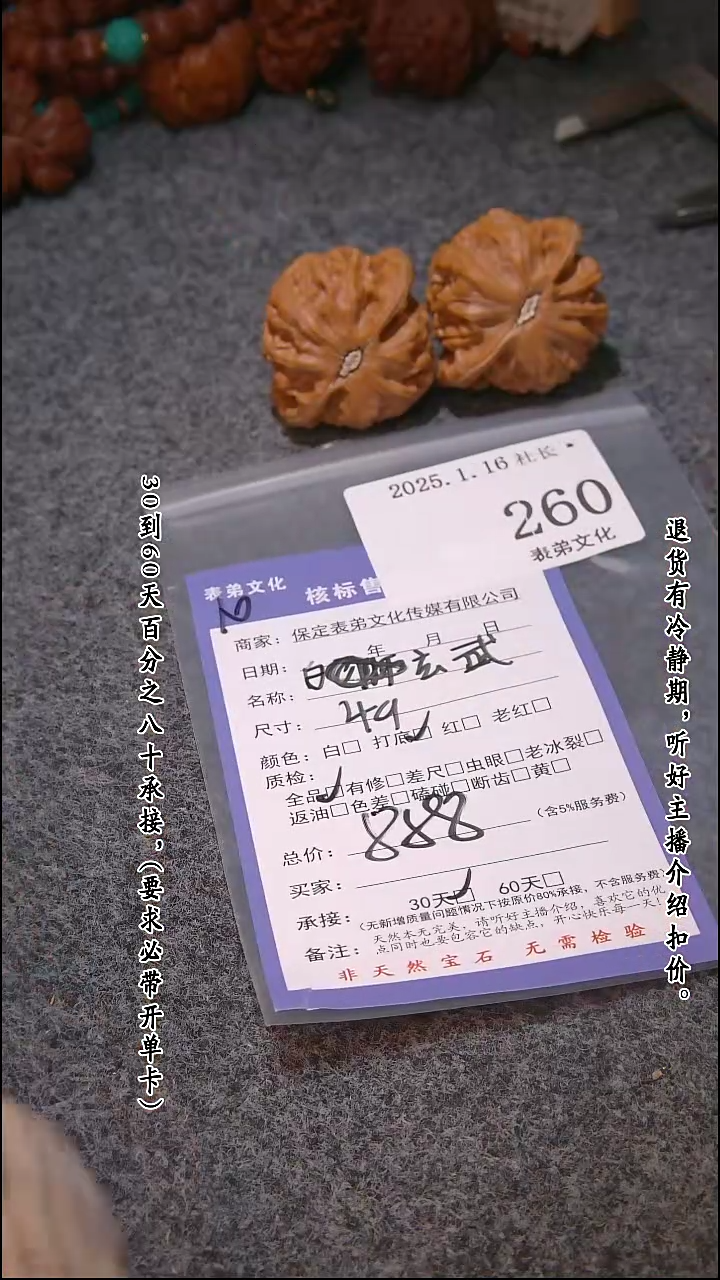 2025.1.16 社长
260
表弟文化
表弟文化
核标售
商家：保定表弟文化传媒有限公司
日期： 年 月 日
名称： 玄武
尺寸： 49
颜色：白□ 打底□ 红□ 老红□
质检：
全品□有修□差尺□虫眼□老冰裂□
返油□色差□磕碰□断齿□黄□
总价： 888 （含5%服务费）
买家：
承接： 30天□ 60天□
（无新增质量问题情况下按原价80%承接，不含服务费）
备注：天然本无完美，请听好主播介绍，喜欢它的优
点同时也要包容它的缺点，开心快乐每一天！
非天然宝石 无需检验
30到60天百分之八十承接，（要求必带开单卡）
退货有冷静期，听好主播介绍扣价。